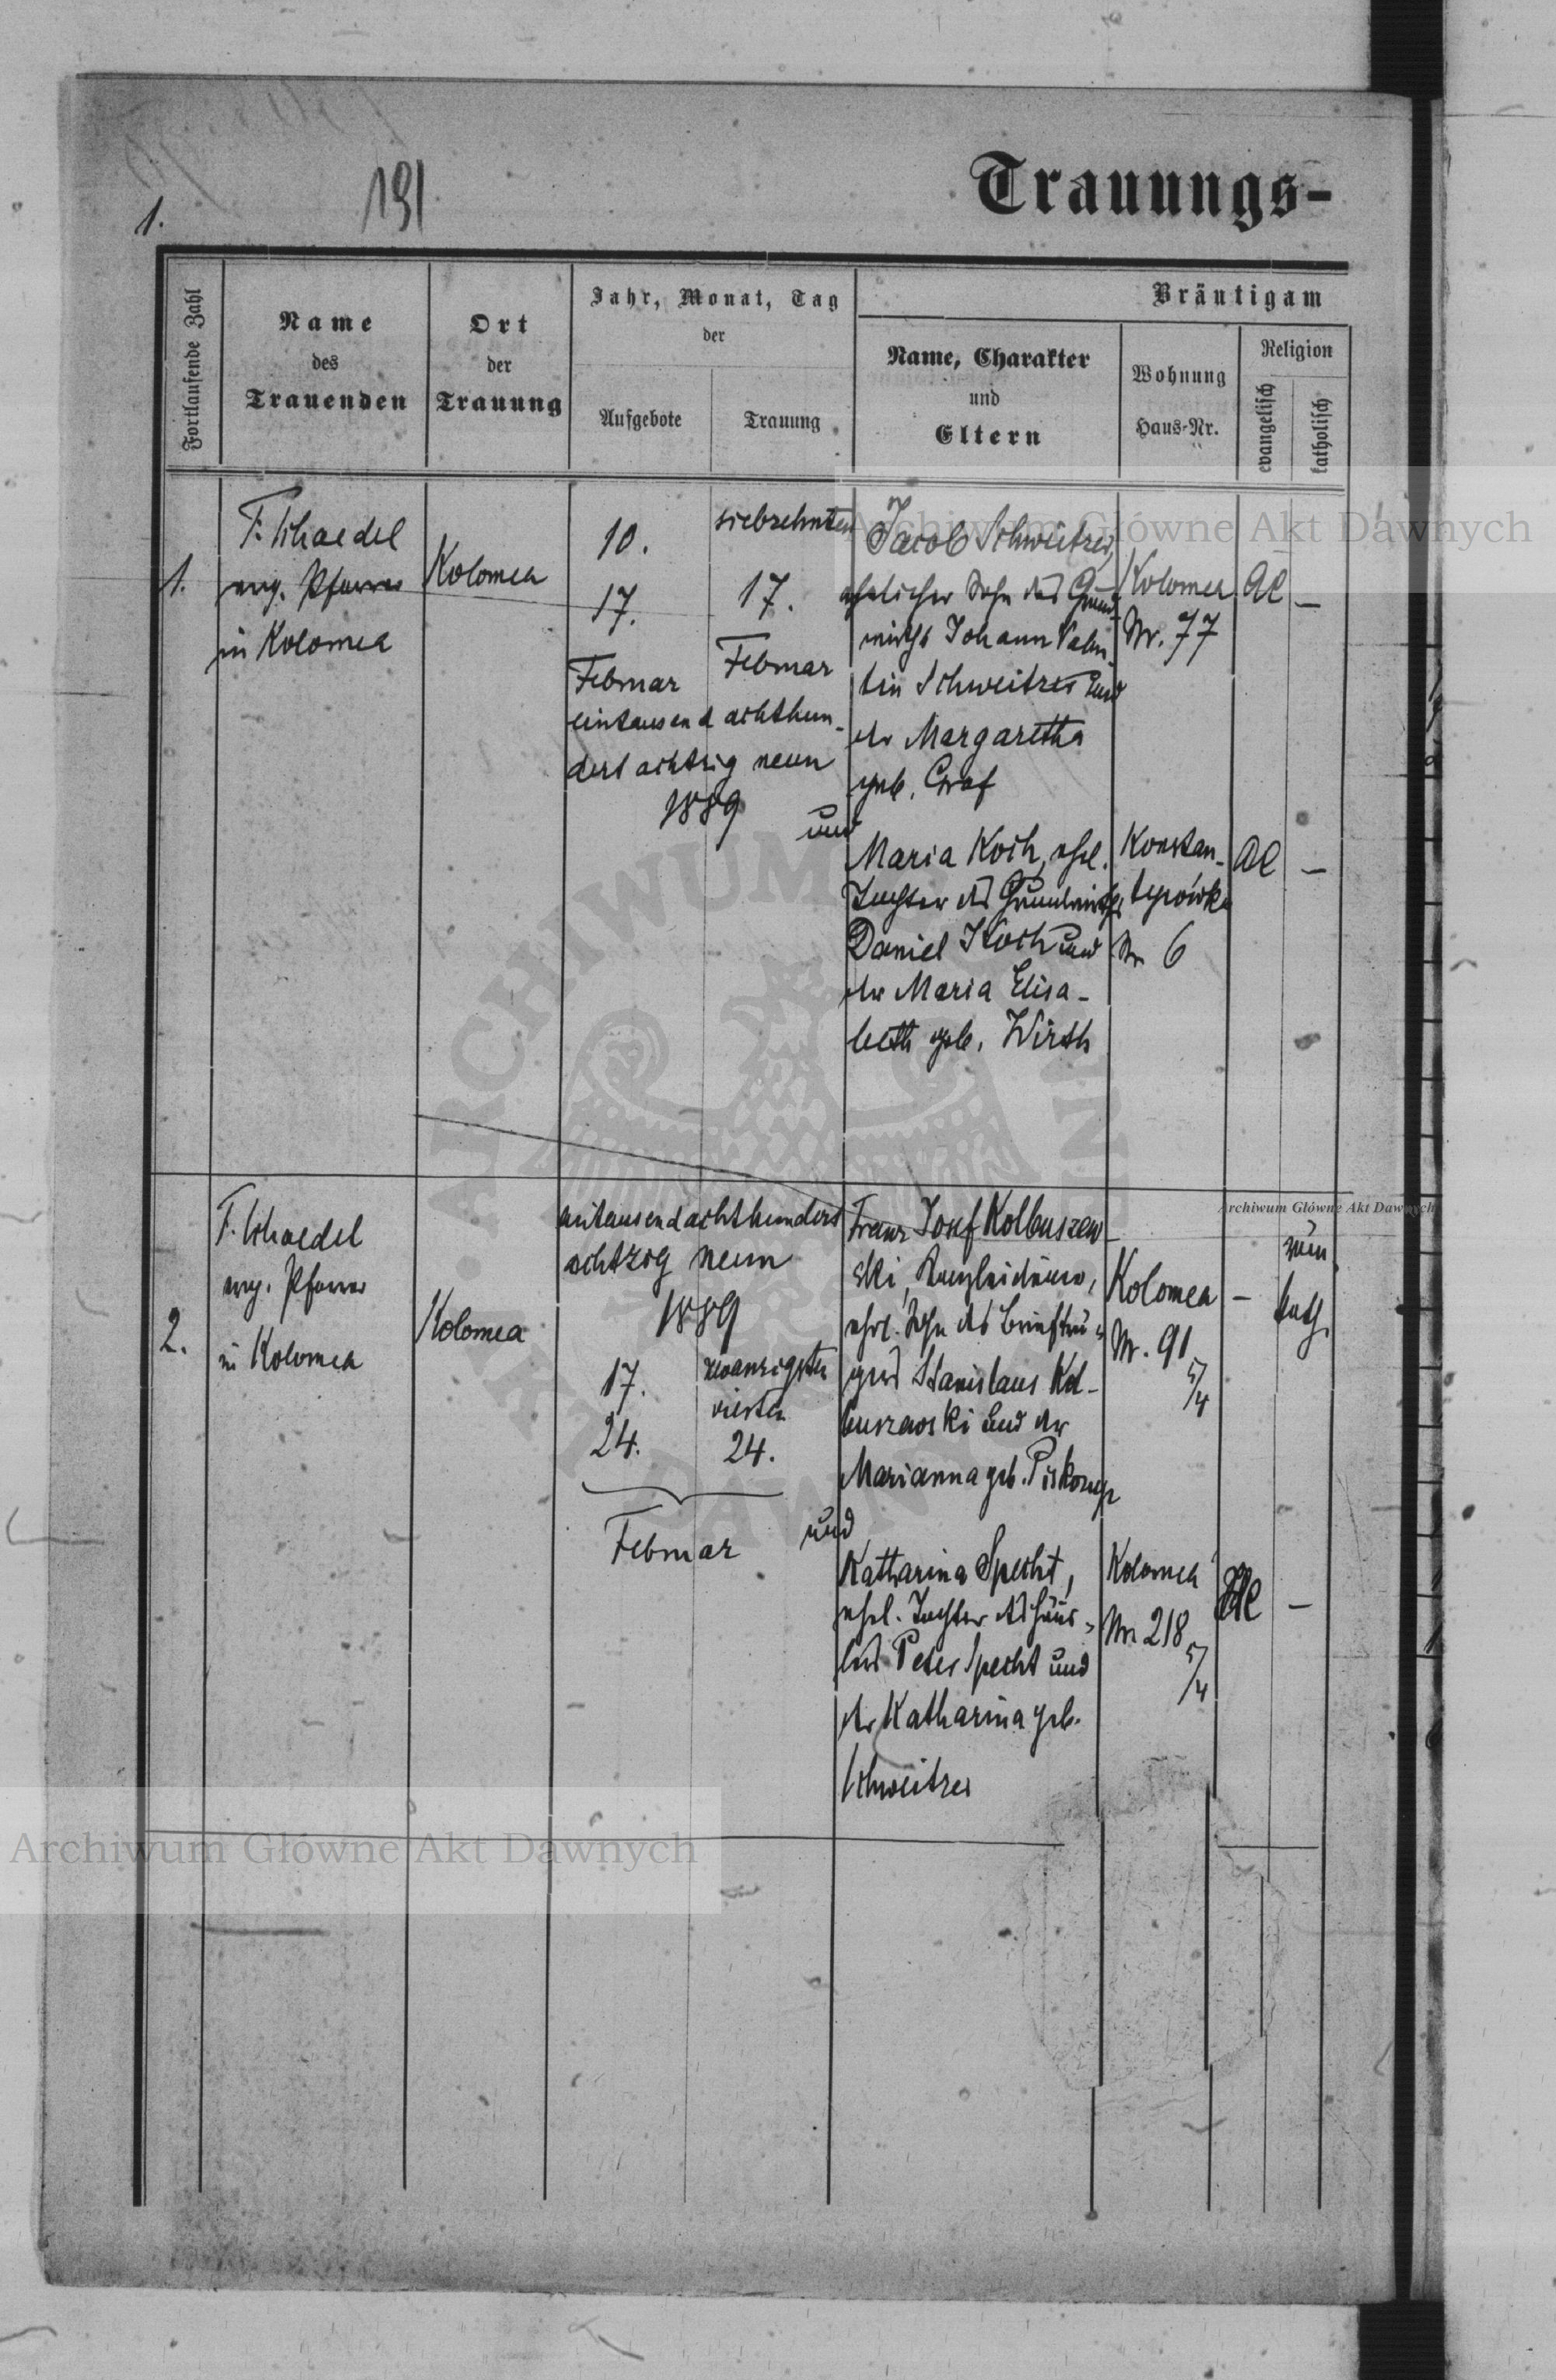 1.
191
Trauungs-
Fortlaufende Zahl
Name
des
Trauenden
Ort
der
Trauung
Jahr, Monat, Tag
der
Aufgebote
Trauung
Bräutigam
Name, Charakter
und
Eltern
Wohnung
Haus-Nr.
Religion
evangelisch
katholisch
1.
F. Schaedel
evg. Pfarrer
in Kolomea
Kolomea
10.
17.
siebzehnten
17.
Februar
Februar
eintausend achthun-
dert achtzig neun
1889
Jacob Schweitzer,
ehelicher Sohn des Grund-
wirths Johann Valen-
tin Schweitzer und
der Margaretha
geb. Graf
Kolomea
Nr. 77
–
und
Maria Koch, ehel.
Tochter des Grundwirths
Daniel Koch und
der Maria Elisa-
beth geb. Wirth
Konstan-
tynówka
Nr 6
–
2.
F. Schaedel
evg. Pfarrer
in Kolomea
Kolomea
eintausend achthundert
achtzig neun
1889
17.
24.
zwanzigsten
vierten
24.
Februar
Franz Josef Kolbuszew-
ski, Kanzleidiener,
ehel. Sohn des Briefträ-
gers Stanislaus Kol-
buszewski und der
Marianna geb.
Kolomea
Nr. 91
5/4
–
röm.
kath.
und
Katharina Specht,
ehel. Tochter des Häus-
lers Peter Specht und
der Katharina geb.
Schweitzer
Kolomea
Nr 218
5/4
–
Archiwum Główne Akt Dawnych
Archiwum Główne Akt Dawnych
Archiwum Główne Akt Dawnych